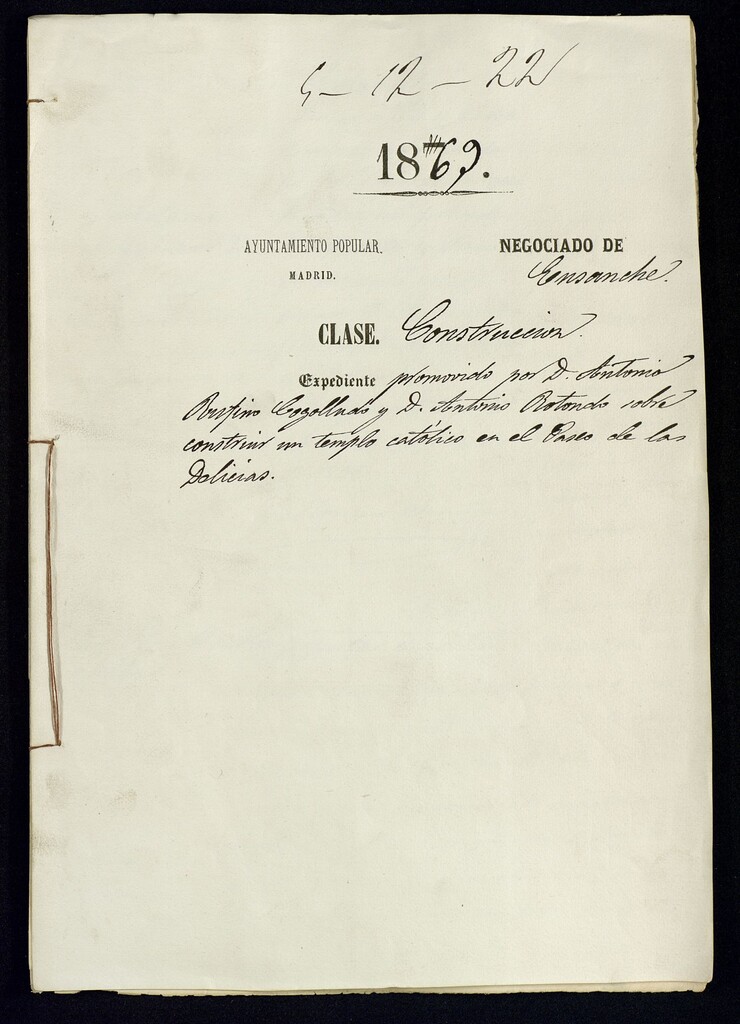 5-12-22
1869.
AYUNTAMIENTO POPULAR.
MADRID.
NEGOCIADO DE
Ensanche.
CLASE. Construccion.
Expediente promovido por D. Antonio
Rufino Cogolludo y D. Antonio Rotondo sobre
construir un templo católico en el Paseo de las
Delicias.